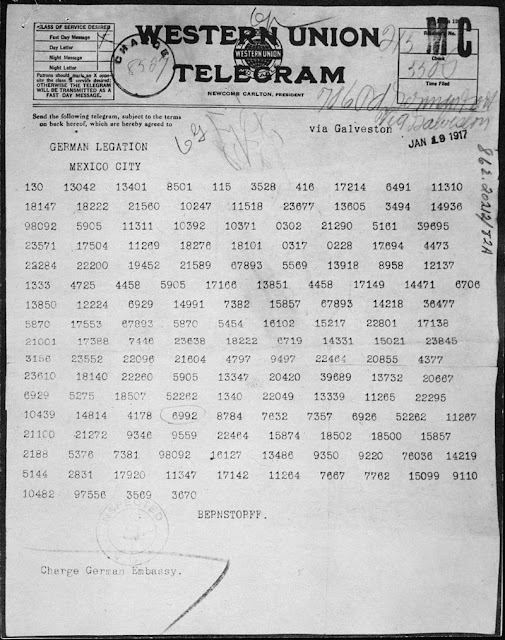 CLASS OF SERVICE DESIRED
Fast Day Message
Day Letter
Night Message
Night Letter
Patrons should mark an X oppo-
site the class of service desired;
OTHERWISE THE TELEGRAM
WILL BE TRANSMITTED AS A
FAST DAY MESSAGE.
CHARGE
WESTERN UNION
WESTERN UNION
TELEGRAM
NEWCOMB CARLTON, PRESIDENT
MC
Check
Time Filed
Send the following telegram, subject to the terms
on back hereof, which are hereby agreed to
via Galveston
JAN 19 1917
GERMAN LEGATION
MEXICO CITY
130 13042 13401 8501 115 3528 416 17214 6491 11310
18147 18222 21560 10247 11518 23677 13605 3494 14936
98092 5905 11311 10392 10371 0302 21290 5161 39695
23571 17504 11269 18276 18101 0317 0228 17694 4473
22284 22200 19452 21589 67893 5569 13918 8958 12137
1333 4725 4458 5905 17166 13851 4458 17149 14471 6706
13850 12224 6929 14991 7382 15857 67893 14218 36477
5870 17553 67893 5870 5454 16102 15217 22801 17138
21001 17388 7446 23638 18222 6719 14331 15021 23845
3156 23552 22096 21604 4797 9497 22464 20855 4377
23610 18140 22260 5905 13347 20420 39689 13732 20667
6929 5275 18507 52262 1340 22049 13339 11265 22295
10439 14814 4178 6992 8784 7632 7357 6926 52262 11267
21100 21272 9346 9559 22464 15874 18502 18500 15857
2188 5376 7381 98092 16127 13486 9350 9220 76036 14219
5144 2831 17920 11347 17142 11264 7667 7762 15099 9110
10482 97556 3569 3670
BERNSTORFF.
Charge German Embassy.